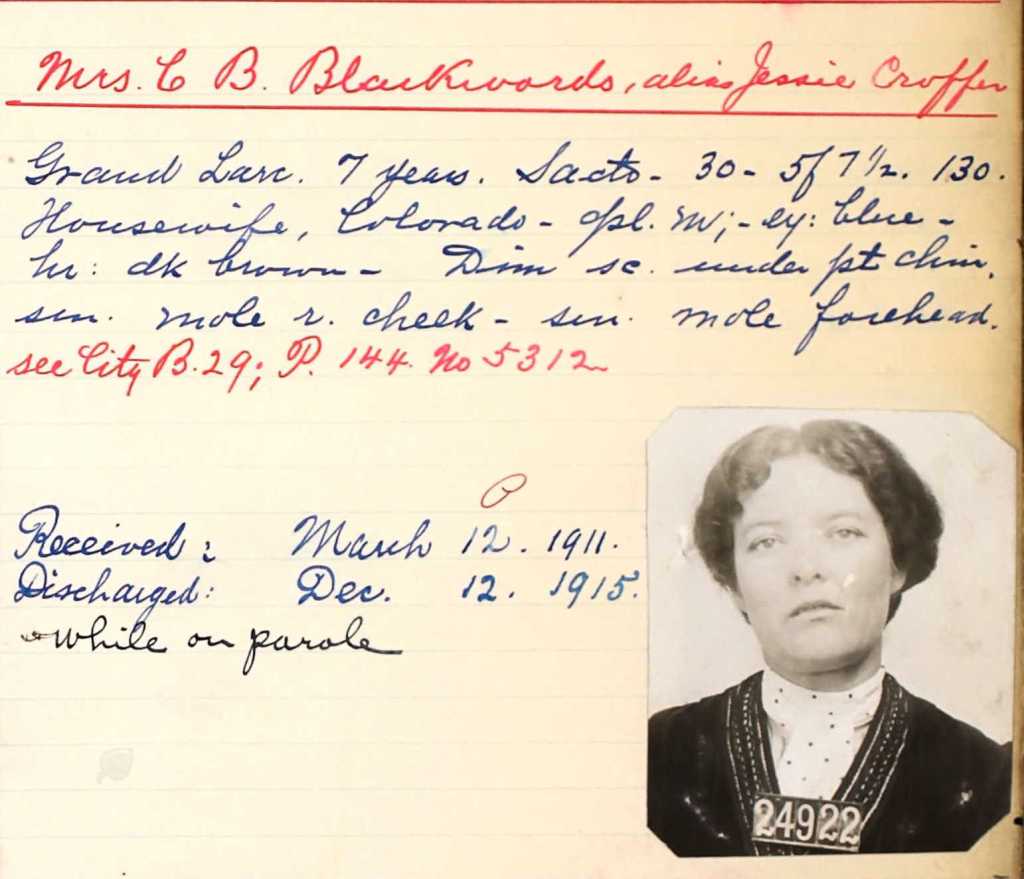 Mrs. C B. Blackwords, alias Jessie Croffer
Grand Larc. 7 years. Sacto - 30 - 5f 7 1/2. 130.
Housewife, Colorado - cpl. m; - ey: blue -
hr: dk brown - Dim sc. under pt chin,
sm. mole r. cheek - sm. mole forehead.
see City B. 29; P. 144. No 5312
P
Received: March 12. 1911.
Discharged: Dec. 12. 1915.
while on parole
24922